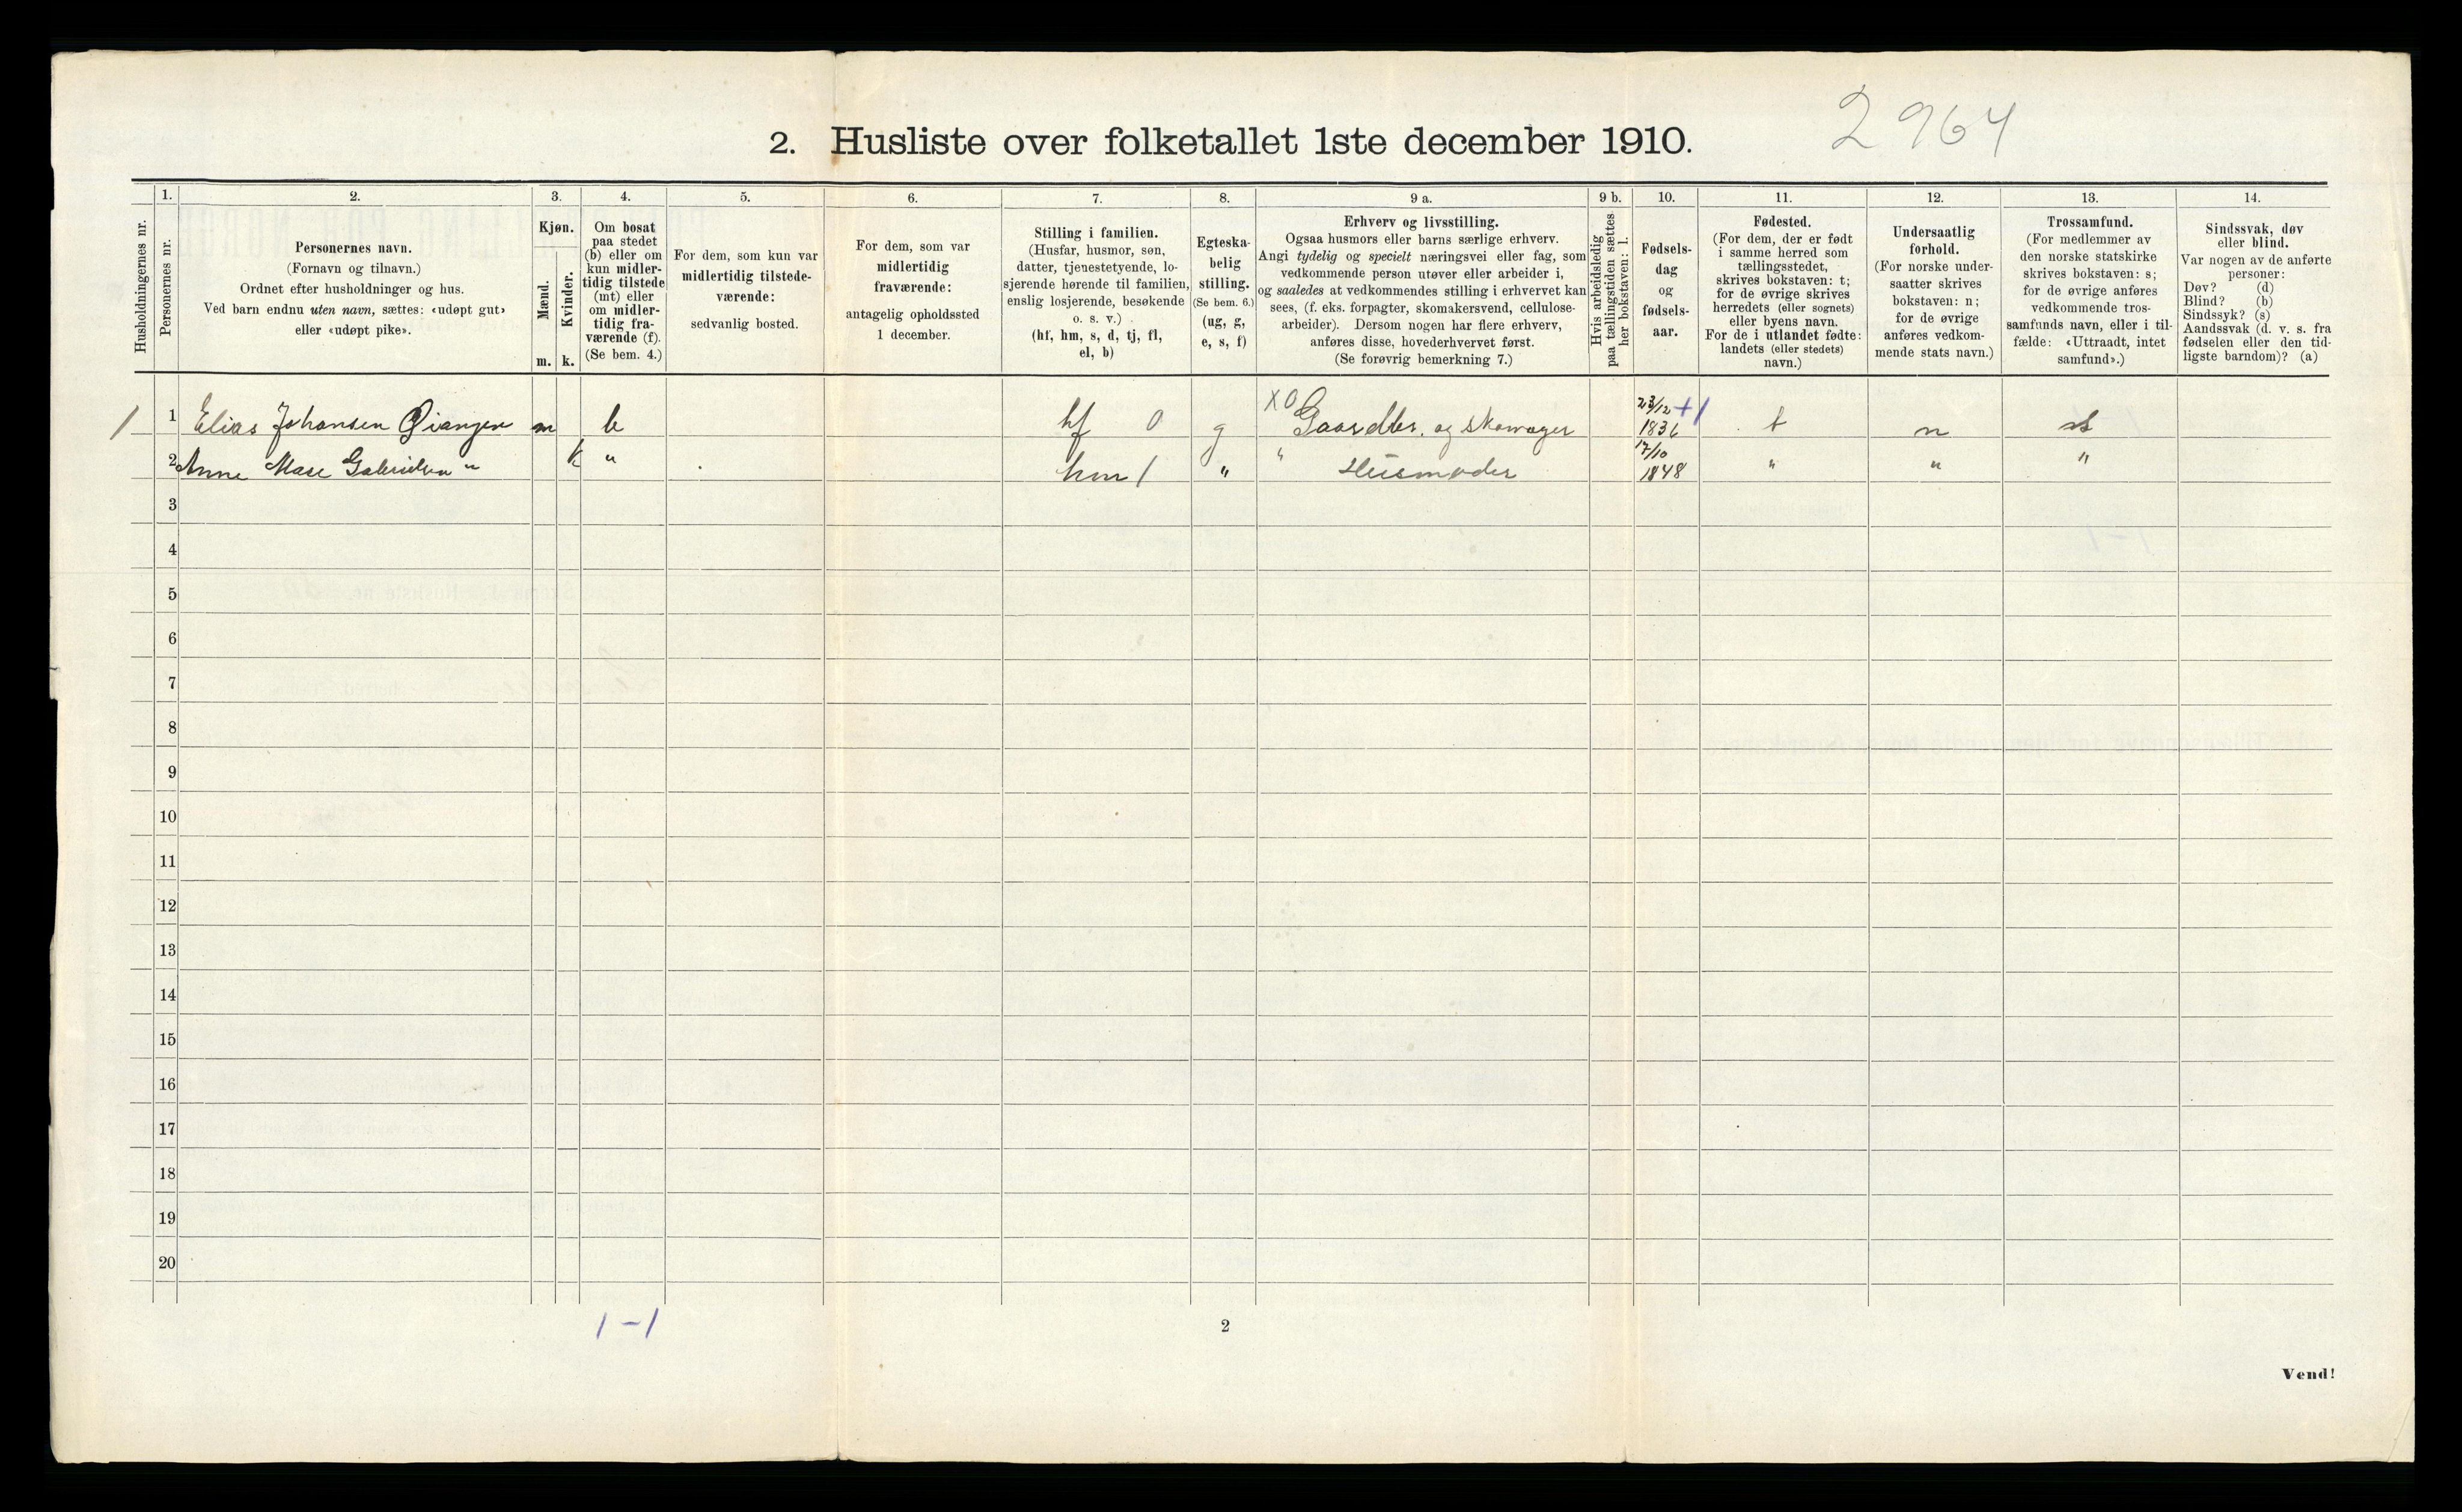 2964
2. Husliste over folketallet 1ste december 1910.
Husholdningernes nr.
1.
Personernes nr.
2.
Personernes navn.
(Fornavn og tilnavn.)
Ordnet efter husholdninger og hus.
Ved barn endnu uten navn, sættes: «udøpt gut»
eller «udøpt pike».
3.
Kjøn.
Mænd.
m.
Kvinder.
k.
4.
Om bosat
paa stedet
(b) eller om
kun midler-
tidig tilstede
(mt) eller
om midler-
tidig fra-
værende (f).
(Se bem. 4.)
5.
For dem, som kun var
midlertidig tilstede-
værende:
sedvanlig bosted.
6.
For dem, som var
midlertidig
fraværende:
antagelig opholdssted
1 december.
7.
Stilling i familien.
(Husfar, husmor, søn,
datter, tjenestetyende, lo-
sjerende hørende til familien,
enslig losjerende, besøkende
o. s. v.)
(hf, hm, s, d, tj, fl,
el, b)
8.
Egteska-
belig
stilling.
(Se bem. 6.)
(ug, g,
e, s, f)
9 a.
Erhverv og livsstilling.
Ogsaa husmors eller barns særlige erhverv.
Angi tydelig og specielt næringsvei eller fag, som
vedkommende person utøver eller arbeider i,
og saaledes at vedkommendes stilling i erhvervet kan
sees, (f. eks. forpagter, skomakersvend, cellulose-
arbeider). Dersom nogen har flere erhverv,
anføres disse, hovederhvervet først.
(Se forøvrig bemerkning 7.)
9 b.
Hvis arbeidsledig
paa tællingstiden sættes
her bokstaven: l.
10.
Fødsels-
dag
og
fødsels-
aar.
11.
Fødested.
(For dem, der er født
i samme herred som
tællingsstedet,
skrives bokstaven: t;
for de øvrige skrives
herredets (eller sognets)
eller byens navn.
For de i utlandet fødte:
landets (eller stedets)
navn.)
12.
Undersaatlig
forhold.
(For norske under-
saatter skrives
bokstaven: n;
for de øvrige
anføres vedkom-
mende stats navn.)
13.
Trossamfund.
(For medlemmer av
den norske statskirke
skrives bokstaven: s;
for de øvrige anføres
vedkommende tros-
samfunds navn, eller i til-
fælde: «Uttraadt, intet
samfund».)
14.
Sindssvak, døv
eller blind.
Var nogen av de anførte
personer:
Døv? (d)
Blind? (b)
Sindssyk? (s)
Aandssvak (d. v. s. fra
fødselen eller den tid-
ligste barndom)? (a)
1 1 Elias Johansen m b hf 0 g X0 og 23/12 1836 +1 t n s
2 Anne k " hm 1 " " Husmoder 17/10 1848 " " "
3
4
5
6
7
8
9
10
11
12
13
14
15
16
17
18
19
20
1-1
2
Vend!